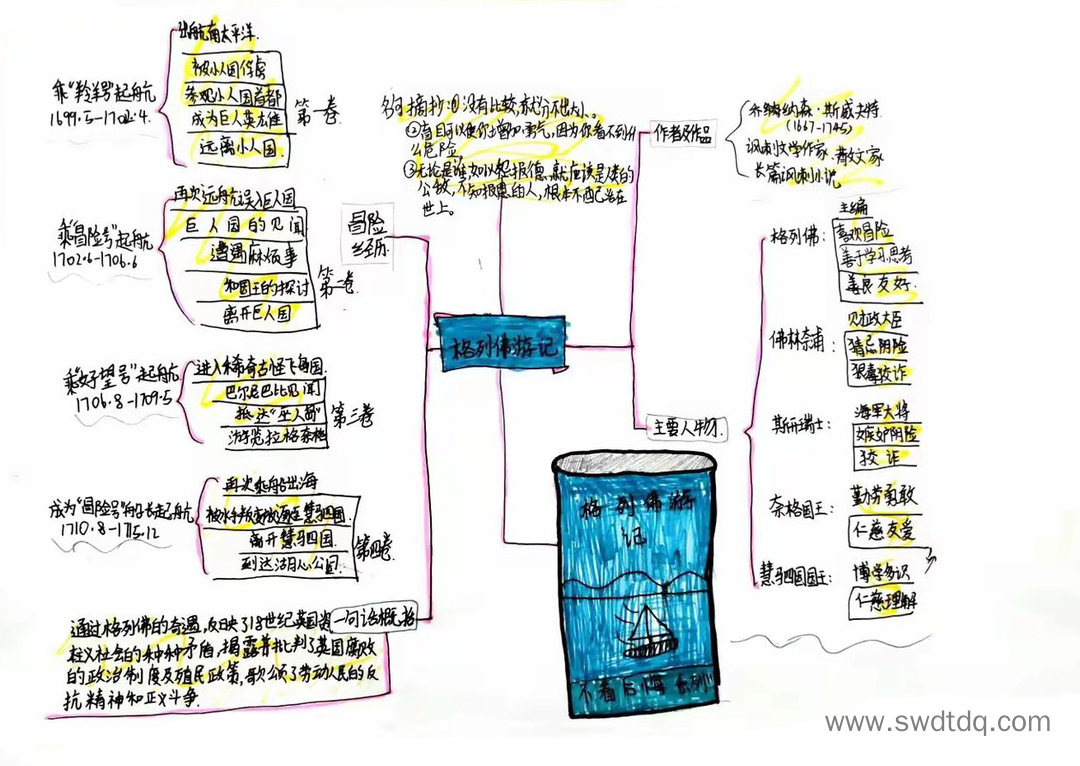 乘“羚羊号”起航
1699.5-1702.4.
出航南太平洋.
被小人国俘虏
参观小人国首都
成为巨人英雄
远离小人国
第一卷
乘“冒险号”起航
1702.6-1706.6
再次远航误入巨人国
巨人国的见闻
遭遇麻烦事
和国王的探讨
离开巨人国
第二卷
乘“好望号”起航
1706.8-1709.5
进入稀奇古怪飞岛国.
巴尔尼巴比见闻
抵达“巫人岛”
游览拉格奈格
第三卷
成为“冒险号”船长起航
1710.8-1715.12
再次乘船出海
离开慧骃国
第四卷.
冒险
经历.
名句摘抄:①没有比较就分不出大小。
②盲目可以使你增加勇气,因为你看不到什
么危险
公敌,不知报恩的人,根本不配活在
世上。
格列佛游记
作者及作品
乔纳森·斯威夫特
(1667-1745)
讽刺文学作家、散文家
长篇讽刺小说。
主要人物.
格列佛:
主编
喜欢冒险
善于学习思考
善良友好.
佛林奈浦:
财政大臣
猜忌阴险
狠毒狡诈
斯开瑞士:
海军大将
嫉妒阴险
狡诈
奈格国王:
勤劳勇敢
仁慈友爱
慧骃国国王:
博学多识
仁慈理解
一句话概括
通过格列佛的奇遇,反映了18世纪英国资
本主义社会的种种矛盾,揭露并批判了英国腐败
的政治制度及殖民政策,歌颂了劳动人民的反
抗精神和正义斗争.
格列佛游
记
不看后悔系列
www.swdtdq.com